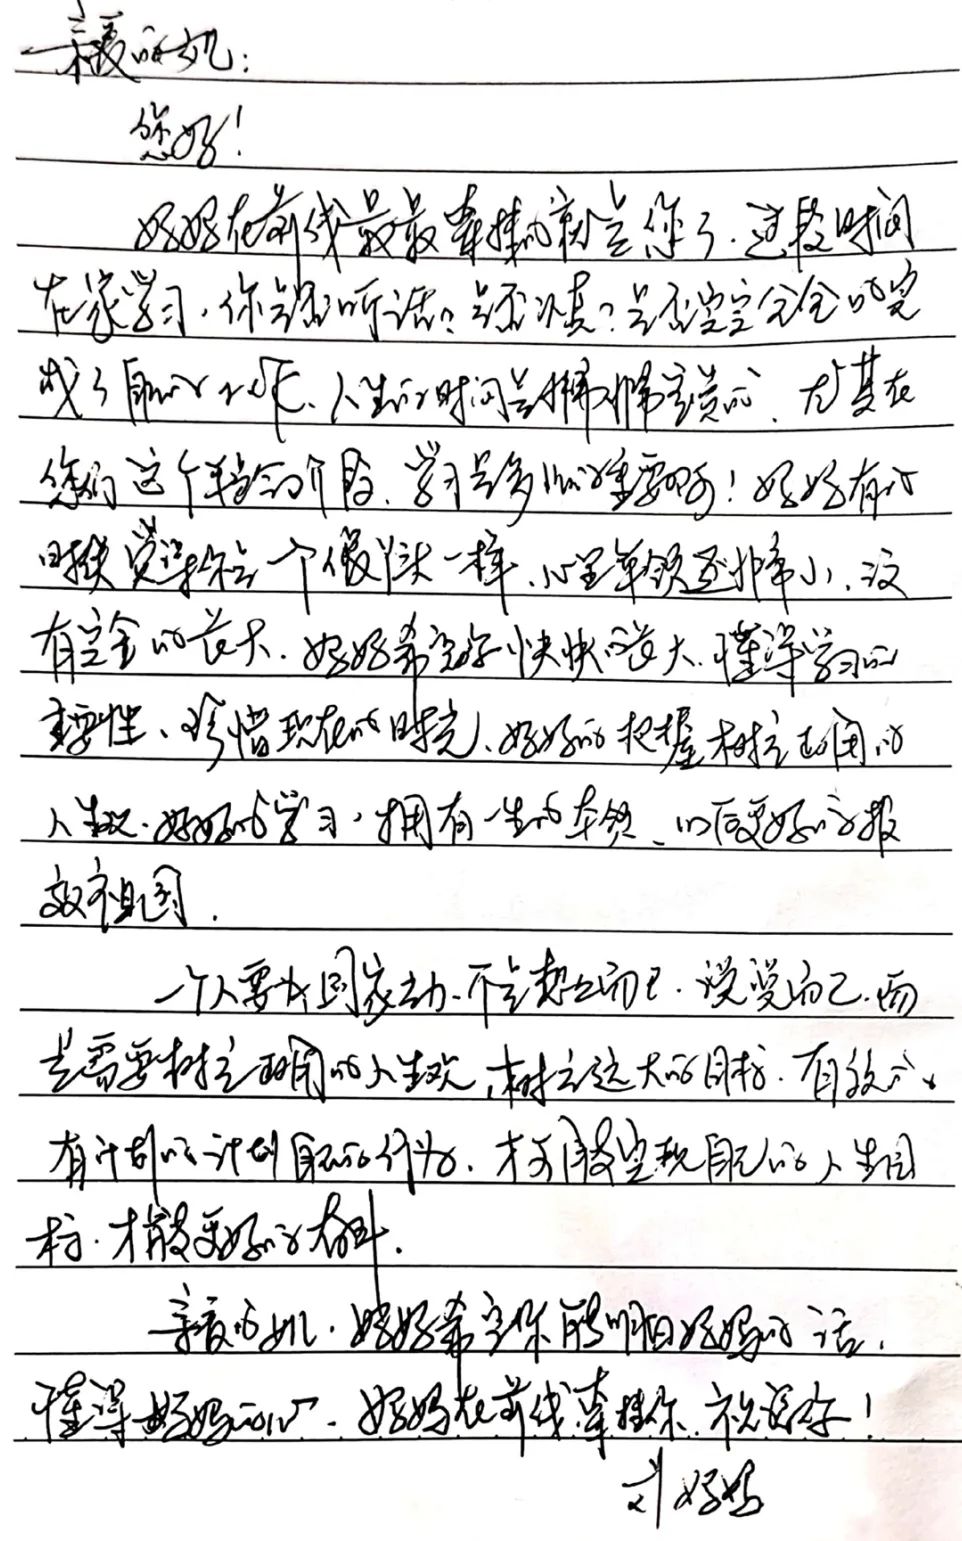 亲爱的妞:
您好!
妈妈在前线最最牵挂的就是您了.这段时间
在家学习,你是否听话?是否认真?是否完完全全的完
成了自己的工作、人生的时间是非常非常宝贵的、尤其在
您们这个年龄的阶段、学习是多么的重要啊!妈妈有的
时候觉得你是一个假小子一样、心里年龄还非常小、没
有完全的长大.妈妈希望你快快的长大.懂得学习的
重要性、珍惜现在的时光、好好的把握树立正确的
人生观.好好的学习,拥有一生的本领、以后更好的报
效祖国.
一个人要为国家出力.不是想想而已.说说而已.而
是需要树立正确的人生观,树立远大的目标.有效的、
有计划的计划自己的行为.才可能实现自己的人生目
标.才能更好的奋斗.
亲爱的妞.妈妈希望你能明白妈妈的话.
懂得妈妈的心.妈妈在前线牵挂你.祝福你!
刘妈妈